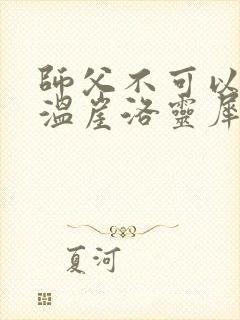 師父不可以
溫崖洛靈犀
夏河